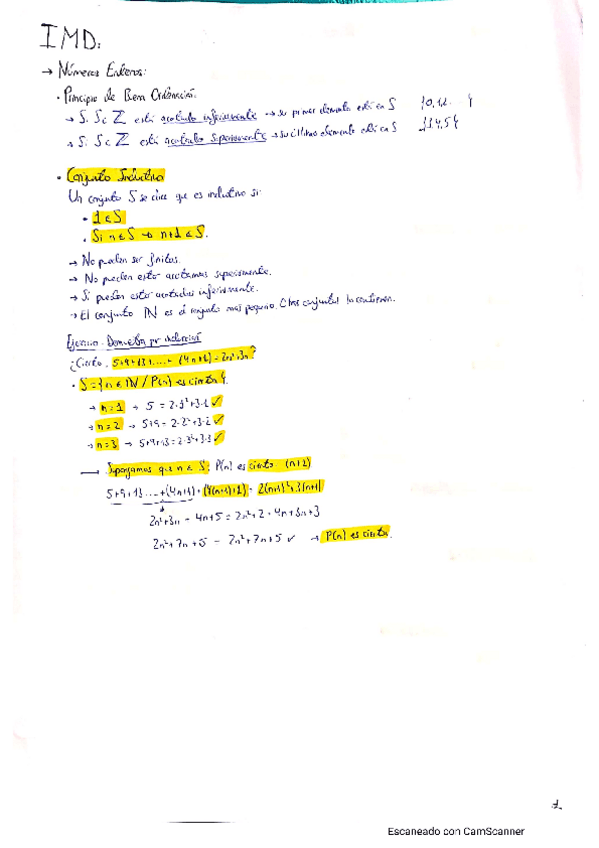 IMD:
→ Números Enteros:
· Principio de Buena Ordenación:
→ Si S⊂ℤ está acotado inferiormente → su primer elemento está en S {0,1,2...}
→ Si S⊂ℤ está acotado superiormente → su último elemento está en S
· Conjunto Inductivo
Un conjunto S se dice que es inductivo si:
· 1 ∈ S
· Si n ∈ S → n+1 ∈ S.
→ No pueden ser finitos.
→ No pueden estar acotados superiormente.
→ Si pueden estar acotados inferiormente.
→ El conjunto ℕ es el conjunto más pequeño. Otros conjuntos lo contienen.
Ejercicio. Demuestra por inducción
¿Cierto. 5+9+13+...+(4n+1) = 2n²+3n?
· S = {n ∈ ℕ / P(n) es cierta}.
→ n=1 → 5 = 2·1²+3·1 ✓
→ n=2 → 5+9 = 2·2²+3·2 ✓
→ n=3 → 5+9+13 = 2·3²+3·3 ✓
→ Supongamos que n ∈ S: P(n) es cierto (n≥2)
5+9+13...+(4n+1)+(4(n+1)+1) = 2(n+1)²+3(n+1)
2n²+3n + 4n+5 = 2n²+2+4n+3n+3
2n²+7n+5 = 2n²+7n+5 ✓ → P(n) es cierta.
1
Escaneado con CamScanner